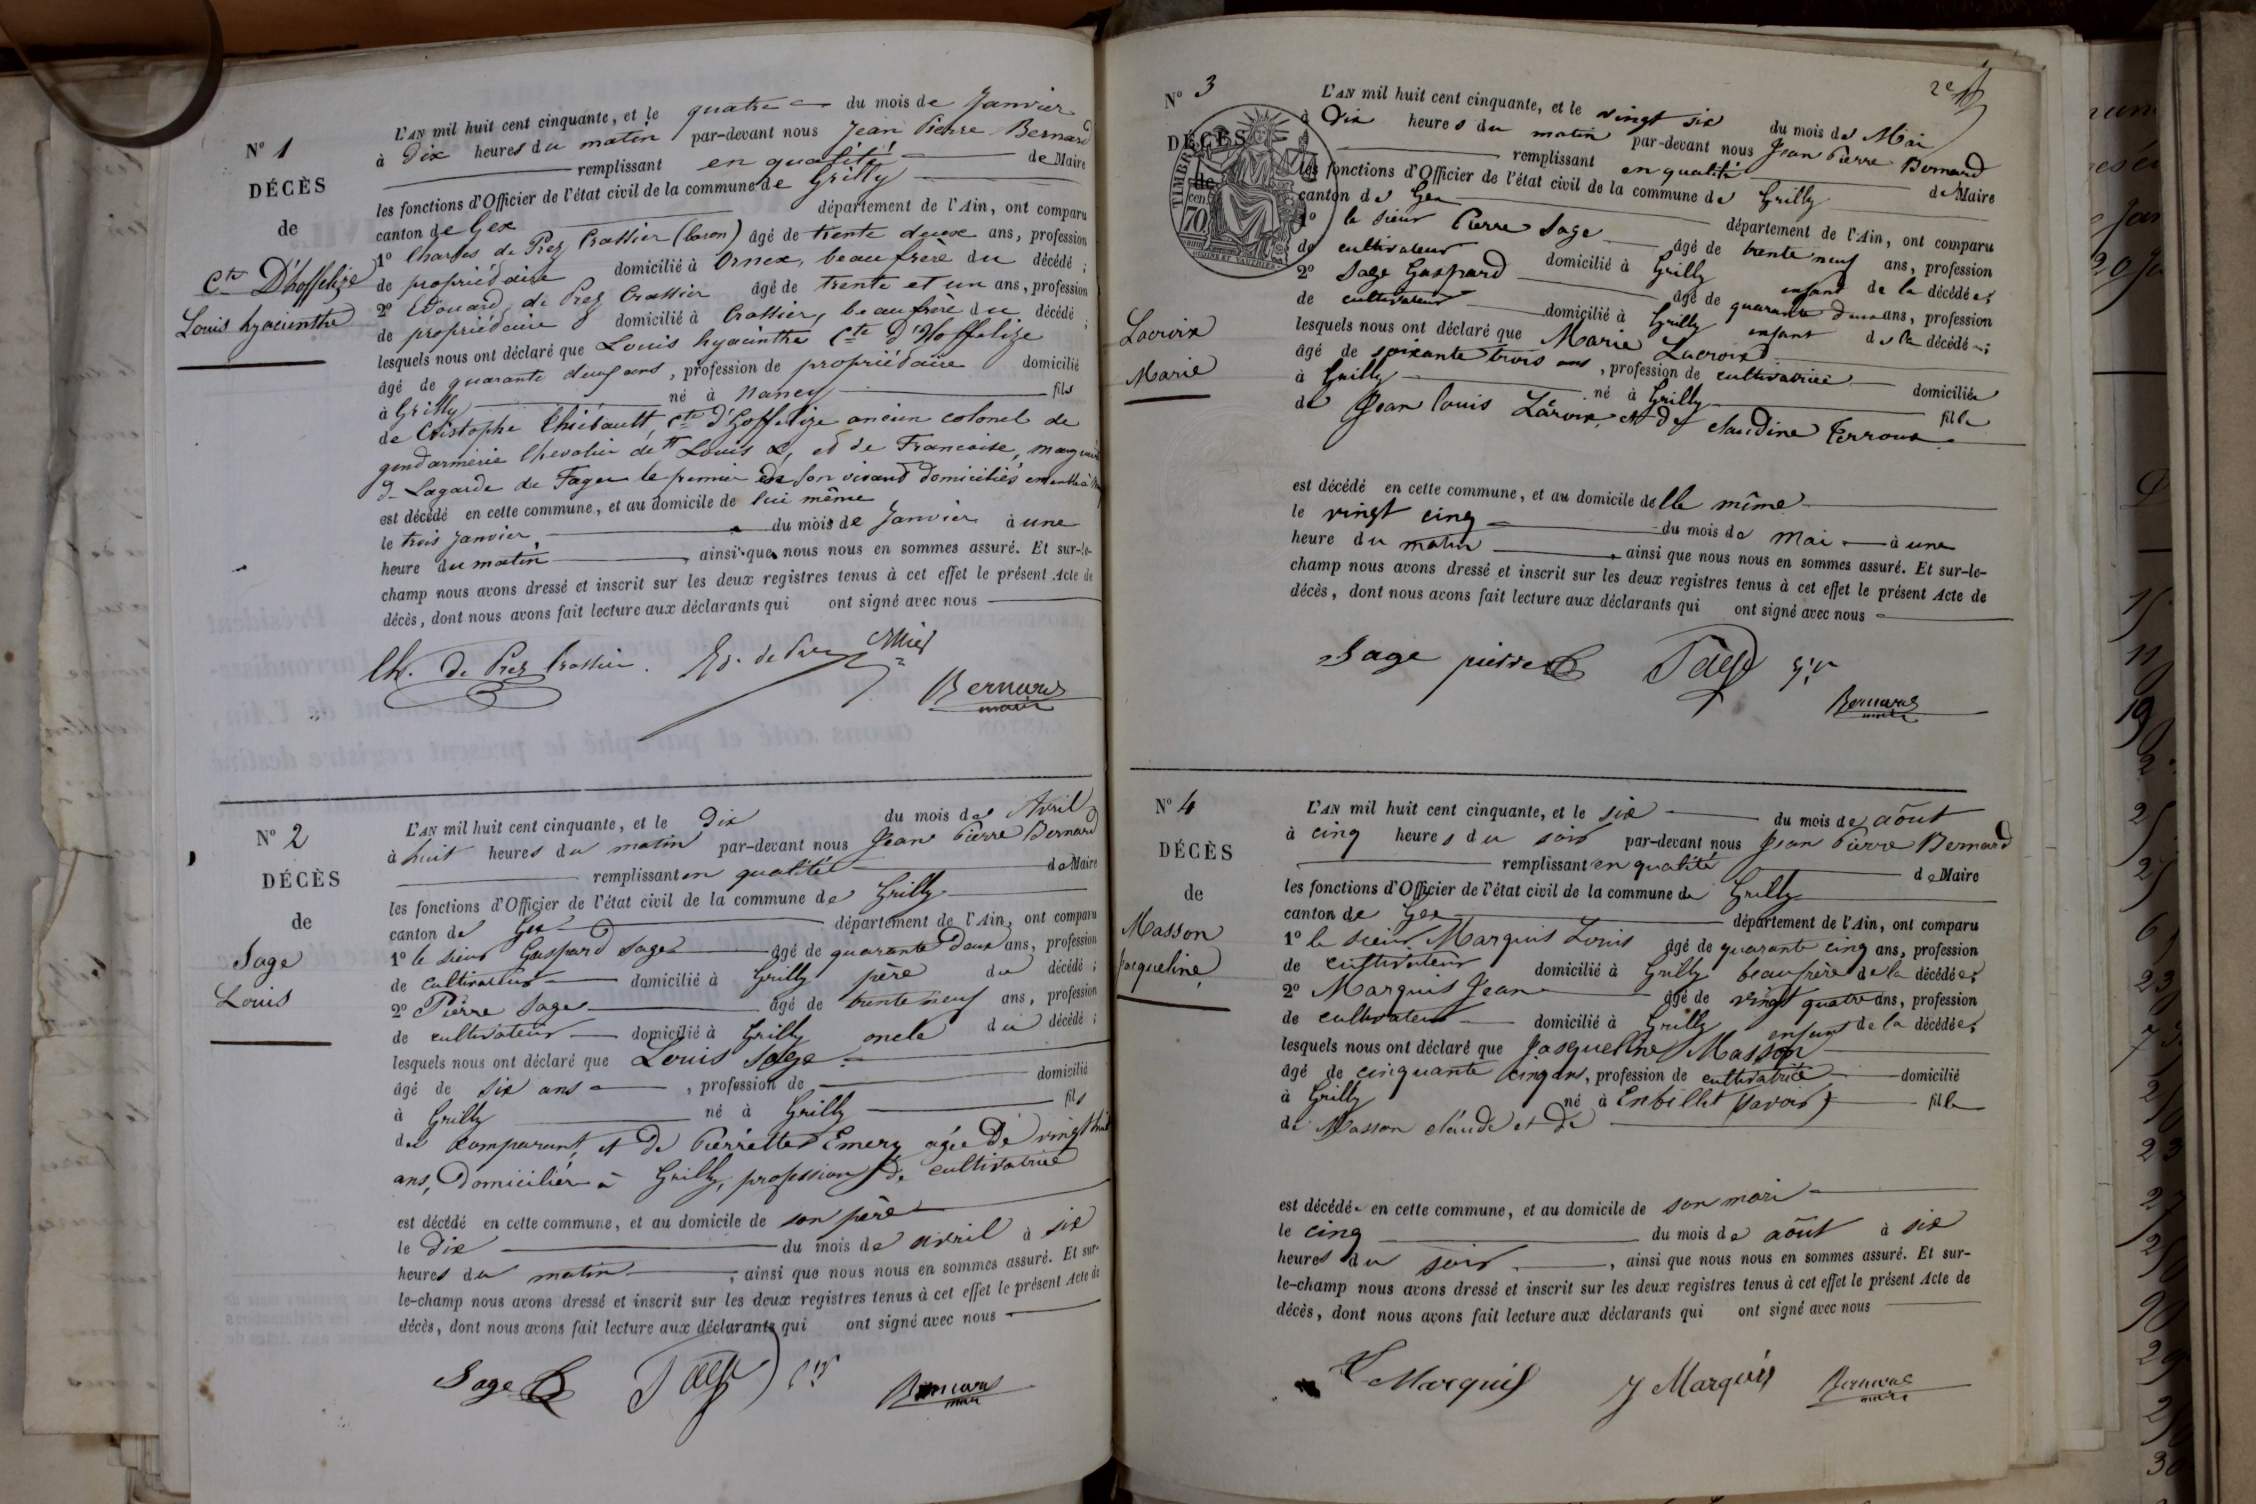 N° 1
DÉCÈS
de
Cte D'hoffelize
Louis hyacinthe
L'AN mil huit cent cinquante, et le quatre du mois de Janvier
à Dix heures du matin par-devant nous Jean Pierre Bernard
remplissant en qualité de Maire
les fonctions d'Officier de l'état civil de la commune de Grilly
canton de Gex département de l'Ain, ont comparu
1° Charles de Prez Crassier (baron) âgé de trente deux ans, profession
de propriédaire domicilié à Ornex, beaufrère du décédé ;
2° Edouard de Prez Crassier âgé de trente et un ans, profession
de propriédaire domicilié à Crassier, beaufrère du décédé ;
lesquels nous ont déclaré que Louis hyacinthe Cte d'Hoffelize
âgé de quarante ans, profession de propriédaire domicilié
à Grilly né à Nancy fils
de Cristophe Thiébault Cte d'hoffelize ancien colonel de
gendarmerie Chevalier de St Louis &, et de Francoise, marguerite
de Lagarde de Fager le premier de son vivant domiciliés ensemble à
est décédé en cette commune, et au domicile de lui même
le trois Janvier, du mois de Janvier à une
heure du matin , ainsi que nous nous en sommes assuré. Et sur-le-
champ nous avons dressé et inscrit sur les deux registres tenus à cet effet le présent Acte de
décès, dont nous avons fait lecture aux déclarants qui ont signé avec nous
Ch. de Prez Crassier. Ed. de Prez
Bernard
maire
N° 2
DÉCÈS
de
Sage
Louis
L'AN mil huit cent cinquante, et le Dix du mois de Avril
à huit heures du matin par-devant nous Jean Pierre Bernard
remplissant en qualité de Maire
les fonctions d'Officier de l'état civil de la commune de Grilly
canton de Gex département de l'Ain, ont comparu
1° le sieur Gaspard Sage âgé de quarante Deux ans, profession
de cultivateur domicilié à Grilly père du décédé ;
2° Pierre Sage âgé de trente neuf ans, profession
de cultivateur domicilié à Grilly oncle du décédé ;
lesquels nous ont déclaré que Louis Sage
âgé de six ans , profession de domicilié
à Grilly né à Grilly fils
du comparant, et de Pierrette Emery agée de vingt huit
ans, Domiciliée à Grilly, profession de cultivatrice
est décédé en cette commune, et au domicile de son père
le Dix du mois de avril à six
heures du matin , ainsi que nous nous en sommes assuré. Et sur-
le-champ nous avons dressé et inscrit sur les deux registres tenus à cet effet le présent Acte de
décès, dont nous avons fait lecture aux déclarants qui ont signé avec nous
Sage Sage
Bernard
maire
2e
N° 3
DÉCÈS
de
TIMBRE
70
Lacroix
Marie
L'AN mil huit cent cinquante, et le vingt six du mois de Mai
à Dix heures du matin par-devant nous Jean Pierre Bernard
remplissant en qualité de Maire
les fonctions d'Officier de l'état civil de la commune de Grilly
canton de Gex département de l'Ain, ont comparu
1° le sieur Pierre Sage âgé de trente neuf ans, profession
de cultivateur domicilié à Grilly enfant de la décédée ;
2° Sage Gaspard âgé de quarante deux ans, profession
de cultivateur domicilié à Grilly enfant de la décédée ;
lesquels nous ont déclaré que Marie Lacroix
âgé de soixante trois ans , profession de cultivatrice domiciliée
à Grilly né à Grilly fille
de Jean Louis Lacroix, et de claudine Perroux
est décédé en cette commune, et au domicile delle même
le vingt cinq du mois de mai à une
heure du matin , ainsi que nous nous en sommes assuré. Et sur-le-
champ nous avons dressé et inscrit sur les deux registres tenus à cet effet le présent Acte de
décès, dont nous avons fait lecture aux déclarants qui ont signé avec nous
Sage pierre Sage
Bernard
maire
N° 4
DÉCÈS
de
Masson
Jacqueline
L'AN mil huit cent cinquante, et le six du mois de aôut
à cinq heures du soir par-devant nous Jean Pierre Bernard
remplissant en qualité de Maire
les fonctions d'Officier de l'état civil de la commune de Grilly
canton de Gex département de l'Ain, ont comparu
1° le sieur Marquis Louis âgé de quarante cinq ans, profession
de cultivateur domicilié à Grilly beaufrère de la décédée ;
2° Marquis Jean âgé de vingt quatre ans, profession
de cultivateur domicilié à Grilly enfant de la décédée ;
lesquels nous ont déclaré que Jacqueline Masson
âgé de cinquante cinq ans, profession de cultivatrice domicilié
à Grilly né à Enbillet (savoie) fille
de Masson claude et de
est décédé en cette commune, et au domicile de son mari
le cinq du mois de aôut à six
heures du soir , ainsi que nous nous en sommes assuré. Et sur-
le-champ nous avons dressé et inscrit sur les deux registres tenus à cet effet le présent Acte de
décès, dont nous avons fait lecture aux déclarants qui ont signé avec nous
L Marquis J Marquis
Bernard
maire